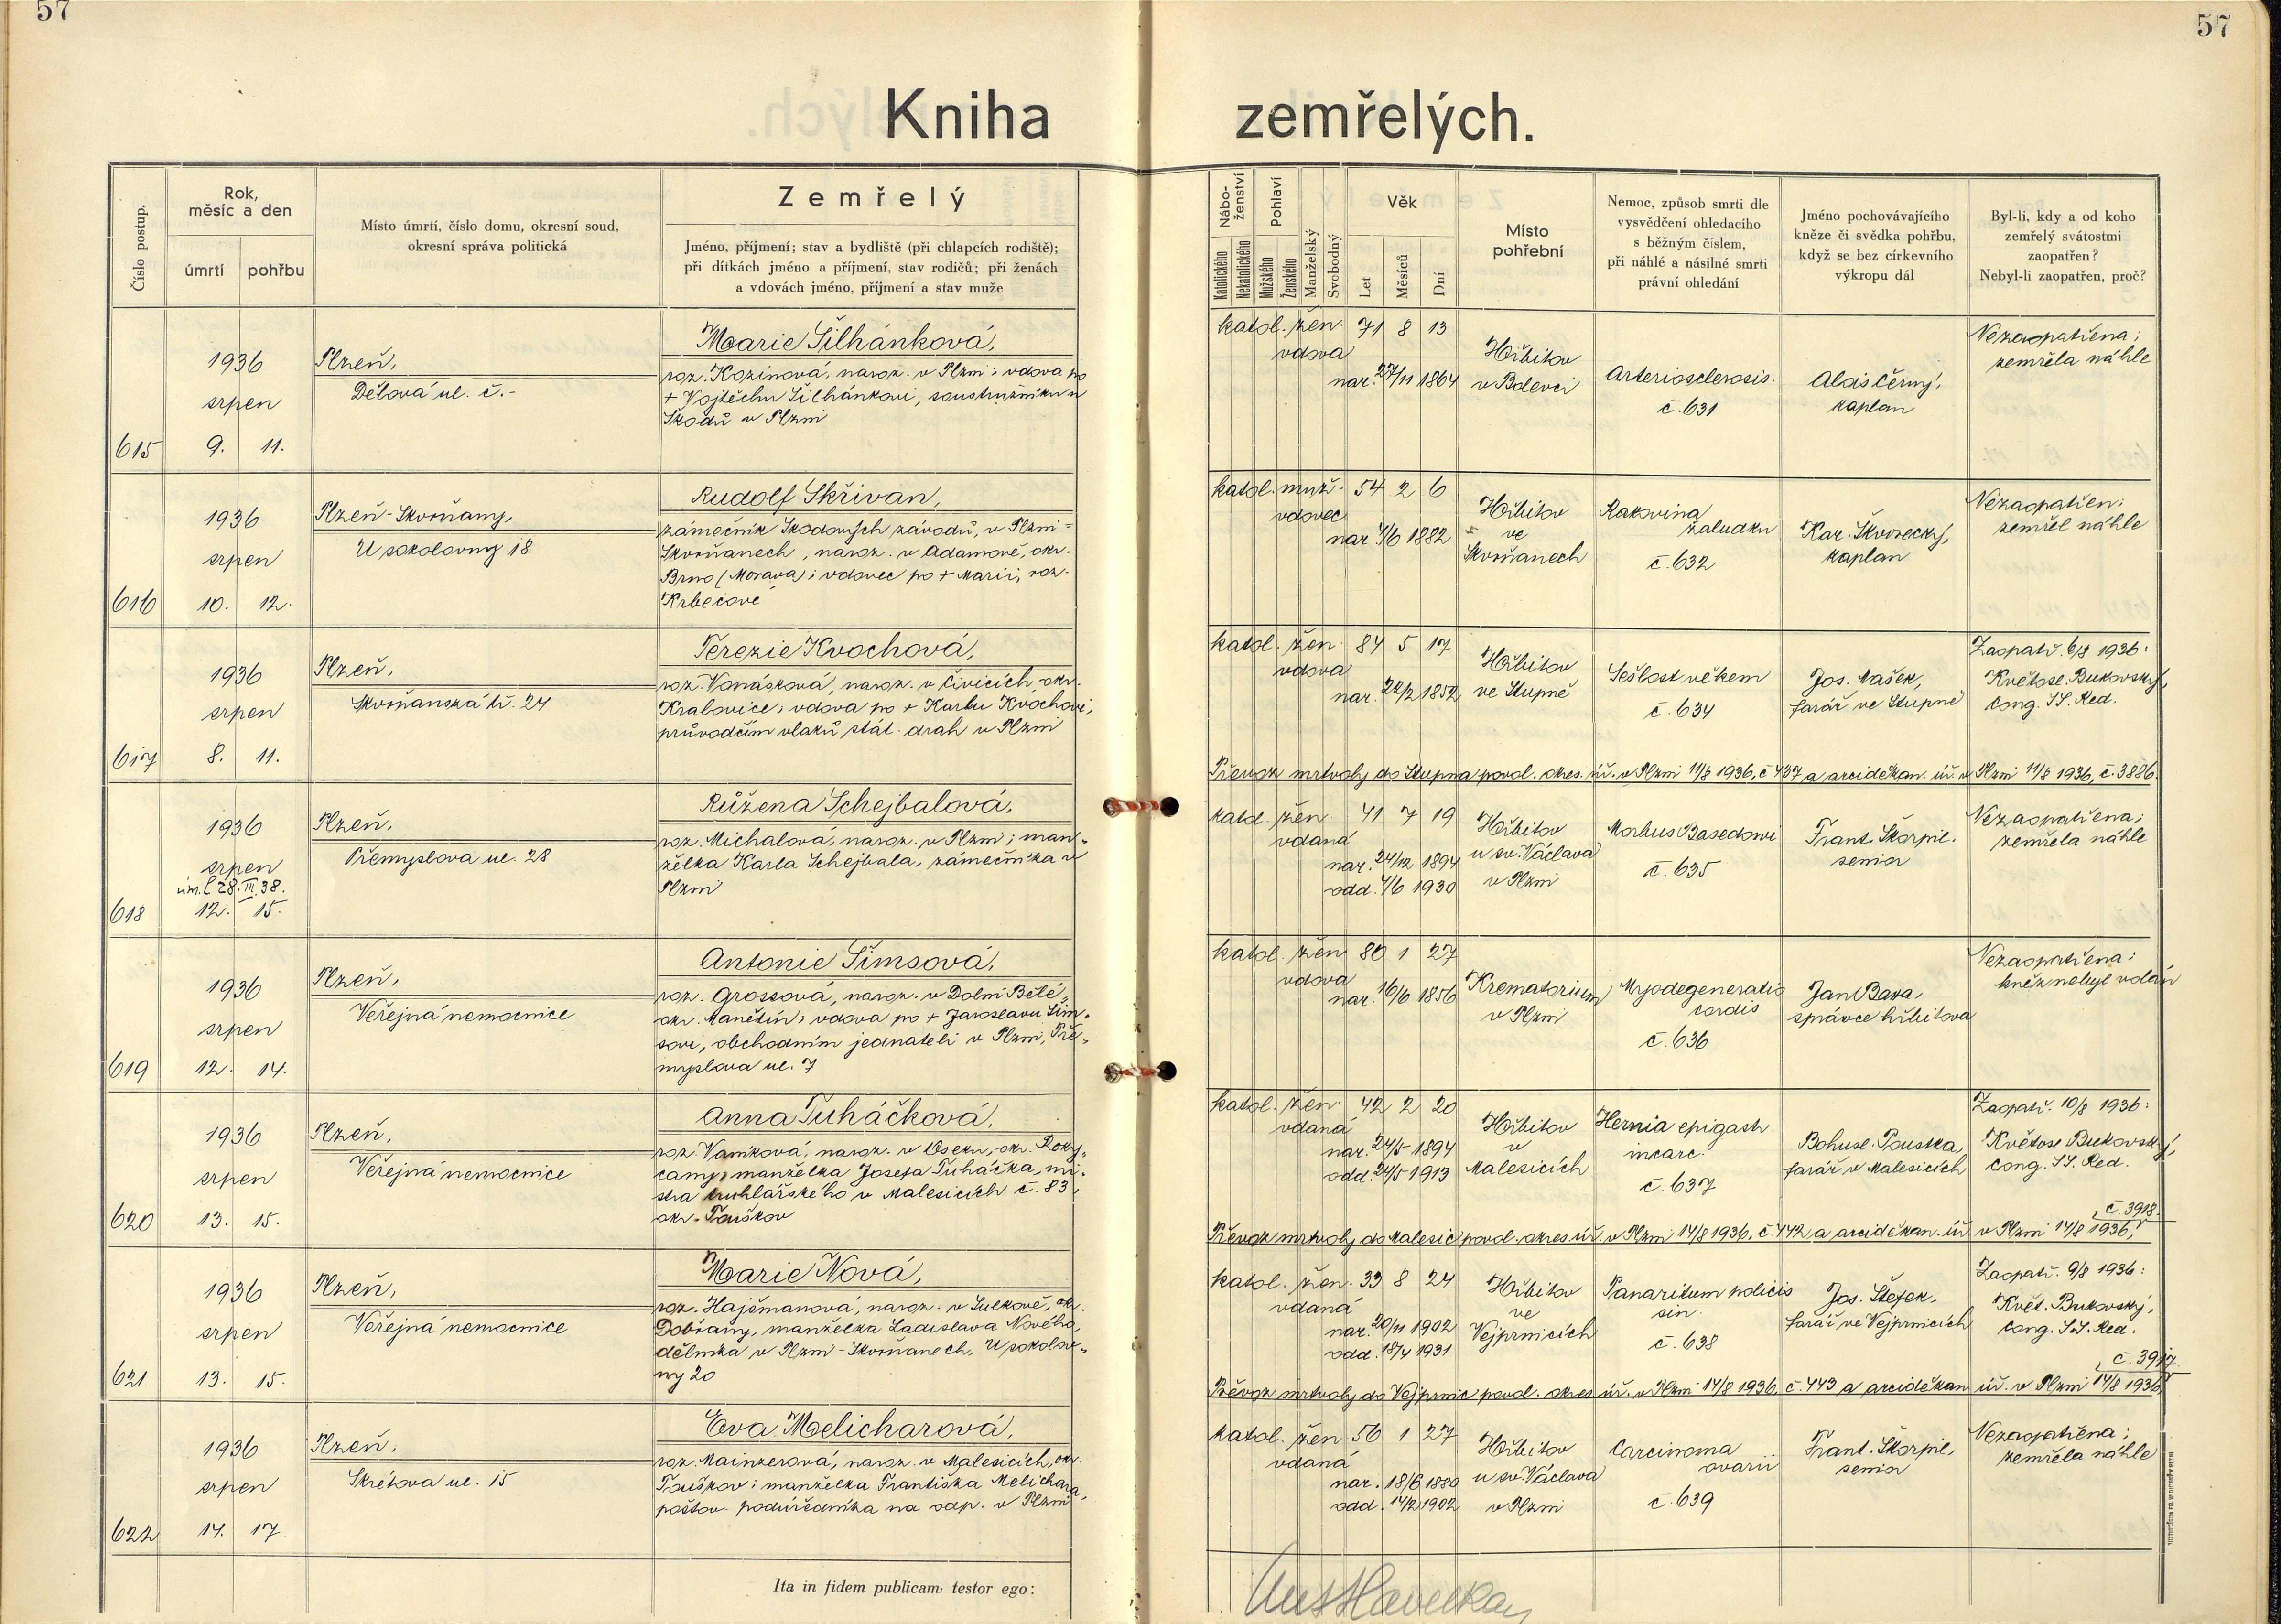 57
57
Kniha zemřelých.
Číslo postup.
Rok,
měsíc a den
úmrtí
pohřbu
Místo úmrtí, číslo domu, okresní soud,
okresní správa politická
Zemřelý
Jméno, příjmení; stav a bydliště (při chlapcích rodiště);
při dítkách jméno a příjmení, stav rodičů; při ženách
a vdovách jméno, příjmení a stav muže
Nábo-
ženství
Katolického
Nekatolického
Pohlaví
Mužského
Ženského
Manželský
Svobodný
Věk
Let
Měsíců
Dní
Místo
pohřební
Nemoc, způsob smrti dle
vysvědčení ohledacího
s běžným číslem,
při náhlé a násilné smrti
právní ohledání
Jméno pochovávajícího
kněze či svědka pohřbu,
když se bez církevního
výkropu dál
Byl-li, kdy a od koho
zemřelý svátostmi
zaopatřen?
Nebyl-li zaopatřen, proč?
615
1936
srpen
9. 11.
Plzeň,
Dělová ul. č. -
Marie Šilhánková,
roz. Kozinová, naroz. v Plzni; vdova po
+ Vojtěchu Šilhánkovi, soustružníku u
Škodů v Plzni
katol. žen. 71 8 13
vdova
nar. 27/11 1864
Hřbitov
v Bolevci
Arteriosclerosis.
č. 631
Alois Černý,
kaplan
Nezaopatřena;
zemřela náhle
616
1936
srpen
10. 12.
Plzeň-Skvrňany,
U sokolovny 18
Rudolf Skřivan,
zámečník Škodových závodů, v Plzni-
Skvrňanech, naroz. v Adamově, okr.
Brno (Morava); vdovec po + Marii, roz.
Krbečové
katol. muž. 54 2 6
vdovec
nar. 4/6 1882
Hřbitov
ve
Skvrňanech
Rakovina
žaludku
č. 632
Kar. Škvorecký,
kaplan
Nezaopatřen;
zemřel náhle
617
1936
srpen
8. 11.
Plzeň,
Skvrňanská tř. 24
Terezie Kvochová,
roz. Vonásková, naroz. v Čivicích, okr.
Kralovice, vdova po + Karlu Kvochovi,
průvodčím vlaků stát. drah v Plzni
katol. žen. 84 5 17
vdova
nar. 22/2 1852
Hřbitov
ve Stupně
Sešlost věkem
č. 634
Jos. Mašek,
farář ve Stupně
Zaopatř. 6/8 1936:
Květosl. Bukovský,
Cong. SS. Red.
Převoz mrtvoly do Stupna povol. okres. úř. v Plzni 11/8 1936, č 437 a arciděkan. úř. v Plzni 11/8 1936, č. 3886.
618
1936
srpen
úm. l. 28. III. 38.
12. 15.
Plzeň,
Přemyslova ul. 28
Růžena Schejbalová,
roz. Michalová, naroz. v Plzni; man-
želka Karla Schejbala, zámečníka v
Plzni
katol. žen. 41 7 19
vdaná
nar. 24/12 1894
odd. 4/6 1930
Hřbitov
u sv. Václava
v Plzni
Morbus Basedowi
č. 635
Frant. Škorpil.
senior
Nezaopatřena;
zemřela náhle
619
1936
srpen
12. 14.
Plzeň,
Veřejná nemocnice
Antonie Šimsová,
roz. Grossová, naroz. v Dolní Bělé,
okr. Manětín, vdova po + Jaroslavu Šim-
sovi, obchodním jednateli v Plzni, Pře-
myslova ul. 7
katol. žen. 80 1 27
vdova
nar. 16/6 1856
Krematorium
v Plzni
Myodegeneratio
cordis
č. 636
Jan Bava,
správce hřbitova
Nezaopatřena;
kněz nebyl volán
620
1936
srpen
13. 15.
Plzeň,
Veřejná nemocnice
Anna Tuháčková,
roz. Vaníková, naroz. v Oseku, okr. Roky-
cany, manželka Josefa Tuháčka, mi-
stra truhlářského v Malesicích č. 83,
okr. Touškov
katol. žen. 42 2 20
vdaná
nar. 24/5 1894
odd. 24/5 1913
Hřbitov
v
Malesicích
Hernia epigastr.
incarc.
č. 637
Bohusl. Pouska,
farář v Malesicích
Zaopatř. 10/8 1936:
Květosl. Bukovský,
Cong. SS. Red.
č. 3918.
Převoz mrtvoly do Malesic povol. okres. úř. v Plzni 14/8 1936, č. 442 a arciděkan. úř. v Plzni 14/8 1936,
621
1936
srpen
13. 15.
Plzeň,
Veřejná nemocnice
Marie Nová,
roz. Hajšmanová, naroz. v Sulkově, okr.
Dobřany, manželka Ladislava Nového,
dělníka v Plzni-Skvrňanech, U sokolov-
ny 20
katol. žen. 33 8 24
vdaná
nar. 20/11 1902
odd. 18/4 1931
Hřbitov
ve
Vejprnicích
Panaritium policis
sin.
č. 638
Jos. Štefek,
farář ve Vejprnicích
Zaopatř. 9/8 1936:
Květ. Bukovský,
Cong. SS. Red.
č. 3917.
Převoz mrtvoly do Vejprnic povol. okres. úř. v Plzni 14/8 1936, č. 443 a arciděkan. úř. v Plzni 14/8 1936,
622
1936
srpen
14. 17.
Plzeň,
Skrétova ul. 15
Eva Melicharová,
roz. Mainzerová, naroz. v Malesicích, okr.
Touškov; manželka Františka Melichara,
poštov. podúředníka na odp. v Plzni
katol. žen. 56 1 27
vdaná
nar. 18/6 1880
odd. 14/2 1902
Hřbitov
u sv. Václava
v Plzni
Carcinoma
ovarii
č. 639
Frant. Škorpil,
senior
Nezaopatřena;
zemřela náhle
Ita in fidem publicam testor ego: